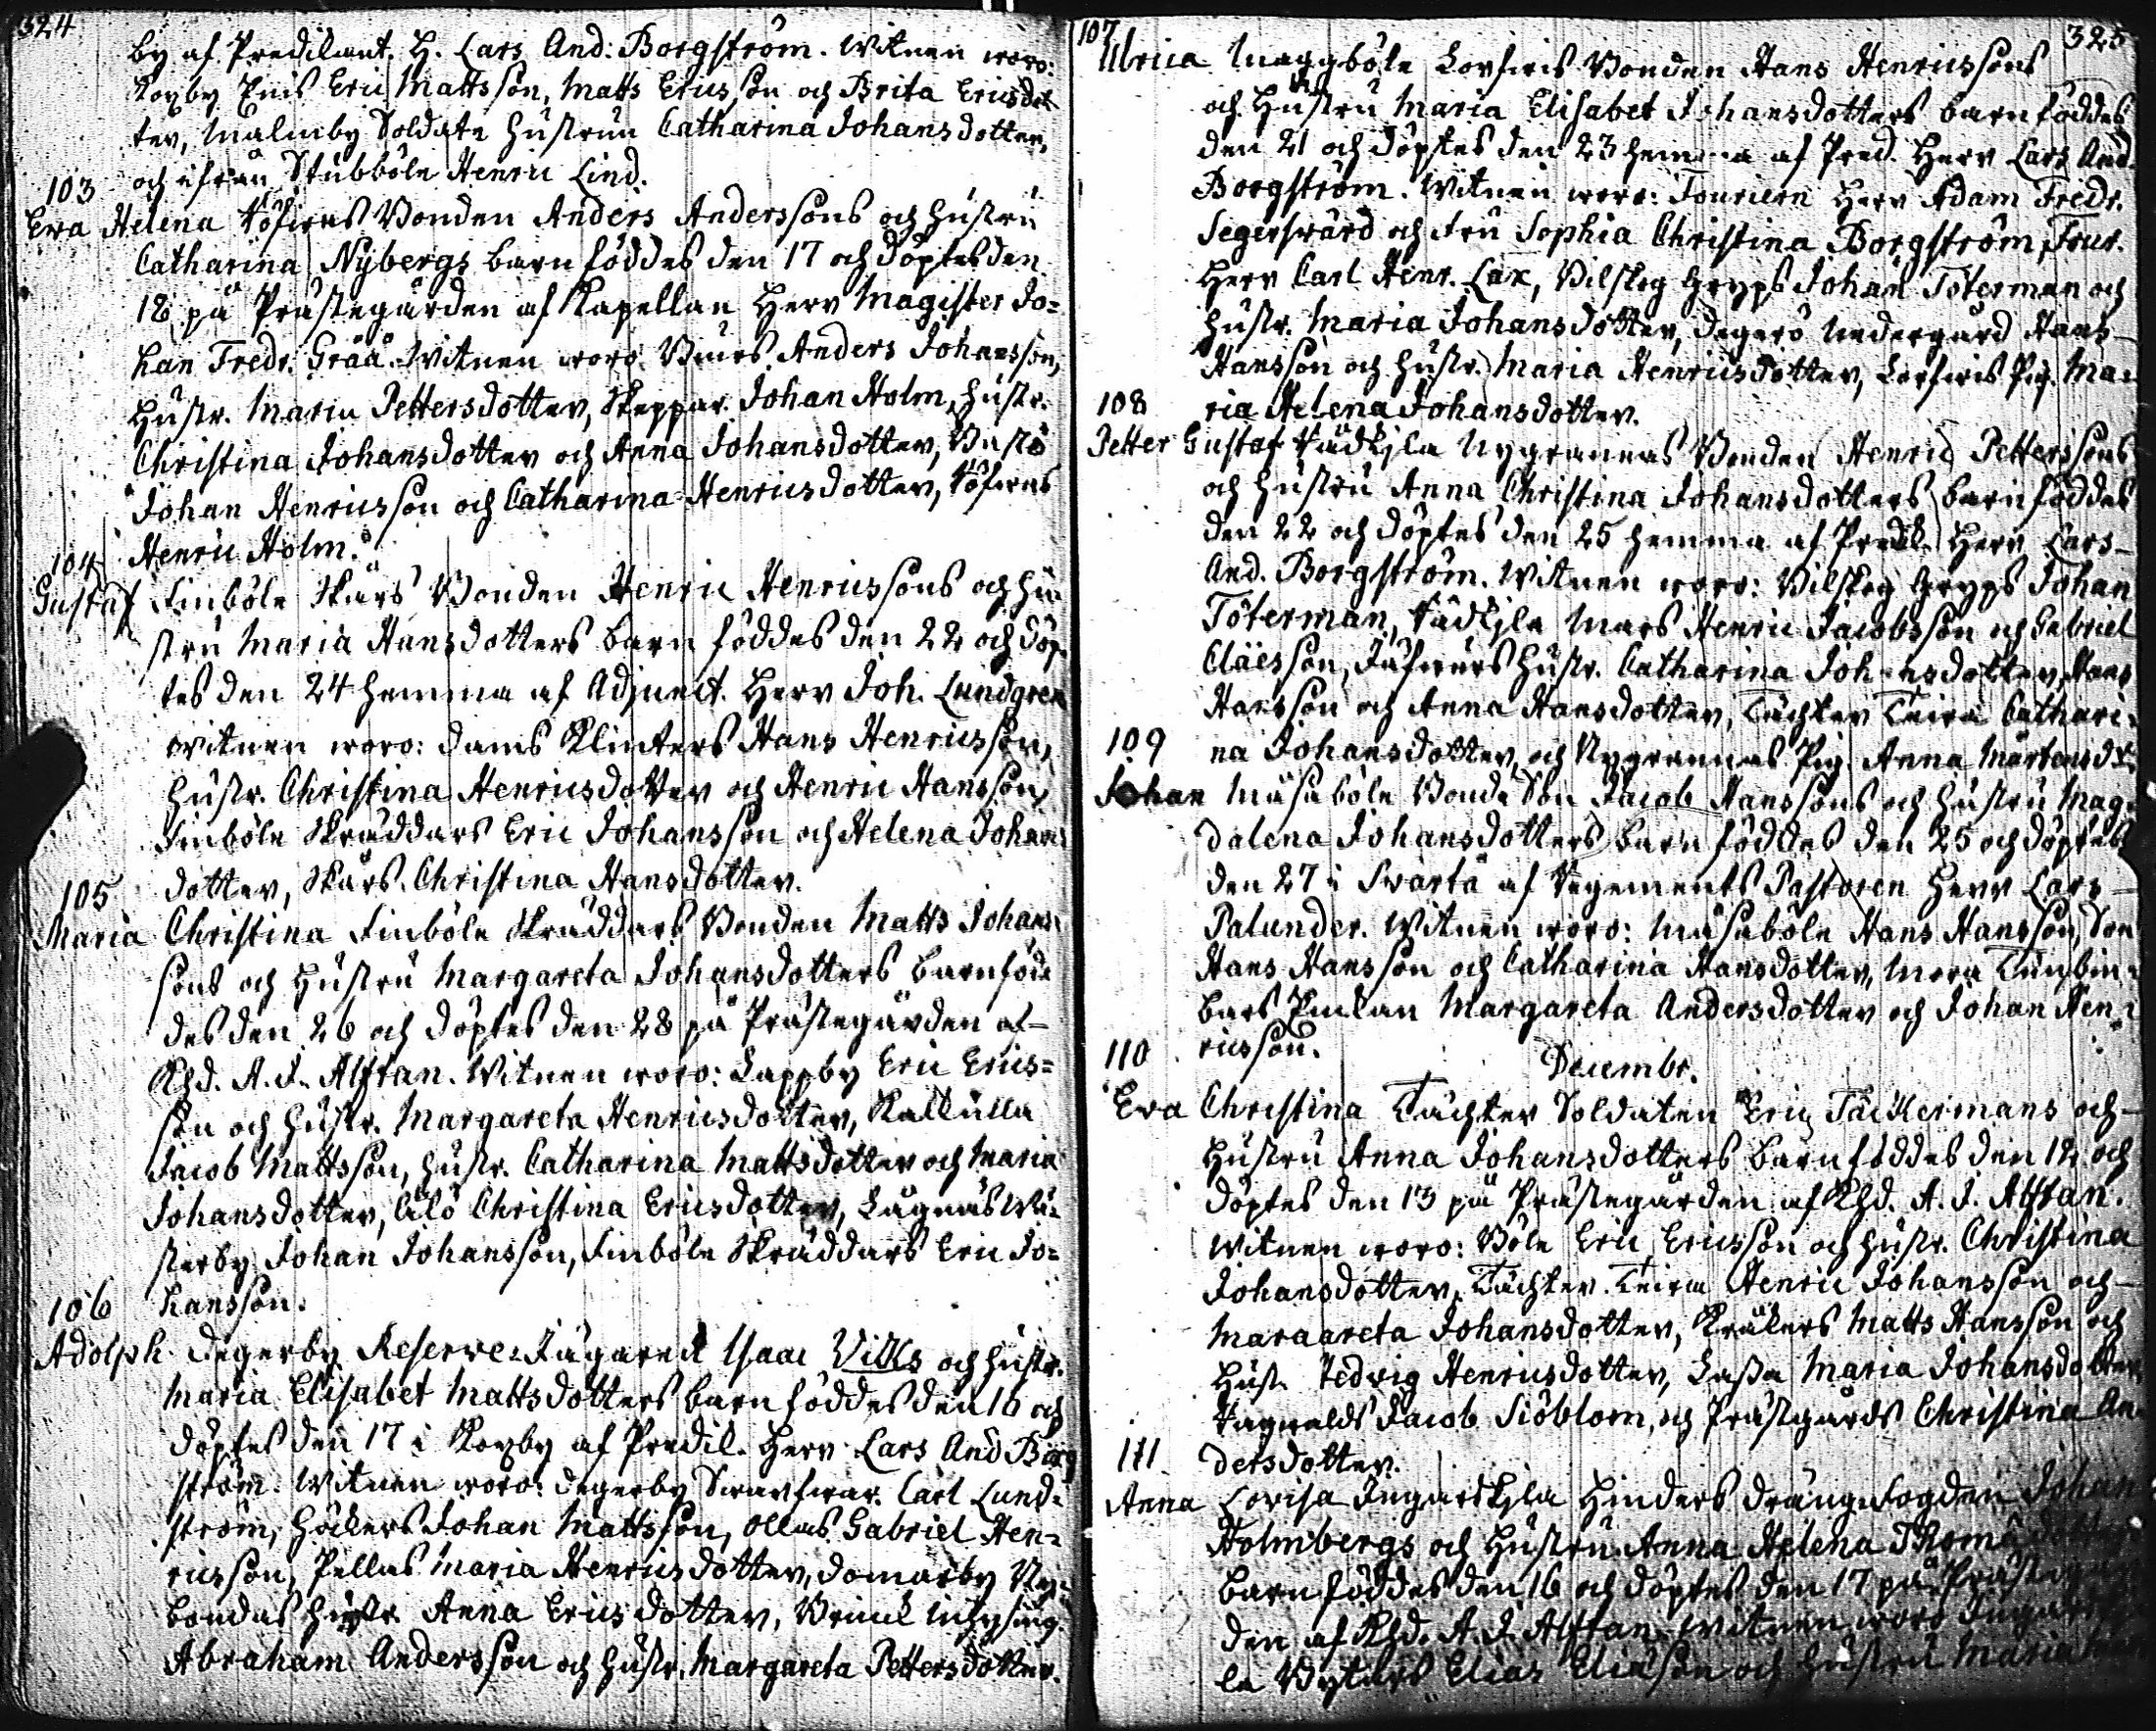 324
by af Predikant. H. Lars And: Borgström. Witnen woro:
Eric Mattsson, Matts Ericsson och Brita Ericsdot-
ter, Malmby Soldate Hustrun Catharina Johansdotter,
och ifrån Stubböle Henric Lind.
103
Eva Helena Bonden Anders Anderssons och Hustru
Catharina Nybergs barn föddes den 17 och döptes den
18 på Prästegården af Kapellan Herr Magister Jo=
han Fredr. Gråå. Witnen woro Anders Johansson,
Hustr. Maria Pettersdotter, Skeppar. Johan Holm, Hustr.
Christina Johansdotter och Anna Johansdotter,
Johan Henricsson och Catharina Henricsdotter,
Henric Holm.
104
Gustaf Finböle Skärs Bonden Henric Henricssons och Hu-
stru Maria Hansdotters barn föddes den 22 och döp-
tes den 24 hemma af Adjunct. Herr Joh. Lundgren
Witnen woro: Dams Klinkers Hans Henricsson,
Hustr. Christina Henricsdotter och Henric Hansson,
Finböle Skräddars Eric Johansson och Helena Johans
dotter, Skärs Christina Hansdotter.
105
Maria Christina Finböle Skräddars Bonden Matts Johans-
sons och Hustru Margareta Johansdotters barn föd-
des den 26 och döptes den 28 på Prästegården af
Khd. A. J. Alftan. Witnen woro: Lappby Eric Erics=
son och Hustr. Margareta Henricsdotter, Kallulla
Jacob Mattsson, Hustr. Catharina Mattsdotter och Maria
Johansdotter, Ålö Christina Ericsdotter, Lågnäs Wä-
sterby Johan Johansson, Finböle Skräddars Eric Jo=
hansson.
106
Adolph Degerby Reserve-Jägaren Isaac Vilks och Hustr.
Maria Elisabet Mattsdotters barn föddes den 16 och
döptes den 17 i Koxby af Predik. Herr Lars And Borg
ström. Witnen woro: Degerby Carl Lund=
ström, Johan Mattsson, Ollas Gabriel Hen=
ricsson, Pellas Maria Henricsdotter, Domarby Ny-
bondas Hustr. Anna Ericsdotter,
Abraham Andersson och Hustr. Margareta Pettersdotter.
107 325
Ulrica Maggböle Bonden Hans Henricssons
och Hustru Maria Elisabet Johansdotters barn föddes
den 21 och döptes den 23 hemma af Pred. Herr Lars And.
Borgström. Witnen woro: Fouriern Herr Adam Fredr.
Segersvärd och Fru Sophia Christina Borgström, Four.
Herr Carl Henr. Lax, Johan Töterman och
Hustr. Maria Johansdotter, Degerö Nedergård Hans
Hansson och Hustr. Maria Henricsdotter, Pig. Ma-
108
ria Helena Johansdotter.
Petter Gustaf Rådkjla Nygrannas Bonden Henric Petterssons
och Hustru Anna Christina Johansdotters barn föddes
den 22 och döptes den 25 hemma af Predik. Herr Lars
And. Borgström. Witnen woro: Johan
Töterman, Rådkjla Mars Henric Jacobsson och Gabriel
Claësson, Hustr. Catharina Johansdotter, Hans
Hansson och Anna Hansdotter, Täckter Teira Cathari-
109
na Johansdotter, och Nygrannas Pig. Anna Mårtensdr.
Johan Måsaböle Bonde Son Jacob Hanssons och Hustru Mag-
dalena Johansdotters barn föddes den 25 och döptes
den 27 i Svartå af Regements Pastoren Herr Lars
Palander. Witnen woro: Måsaböle Hans Hansson, Son
Hans Hansson och Catharina Hansdotter,
Margareta Andersdotter och Johan Hen-
110
ricsson.
Decembr.
Eva Christina Täckter Soldaten Eric Täckermans och
Hustru Anna Johansdotters barn föddes den 12 och
döptes den 13 på Prästegården af Khd. A. J. Alftan.
Witnen woro: Böle Eric Ericsson och Hustr. Christina
Johansdotter, Täckter Teira Henric Johansson och
Margareta Johansdotter, Kråkers Matts Hansson och
Hustr. Hedvig Henricsdotter, Lassa Maria Johansdotter,
Ragvalds Jacob Siöblom, och Prästgårds Christina An-
111
dersdotter.
Anna Lovisa Ingarskjla Hinders drängefogden Johan
Holmbergs och Hustru Anna Helena Thomä
barn föddes den 16 och döptes den 17 på
den af Khd. A. J. Alftan. Witnen woro
la Elias Eliasson och Hustru Maria